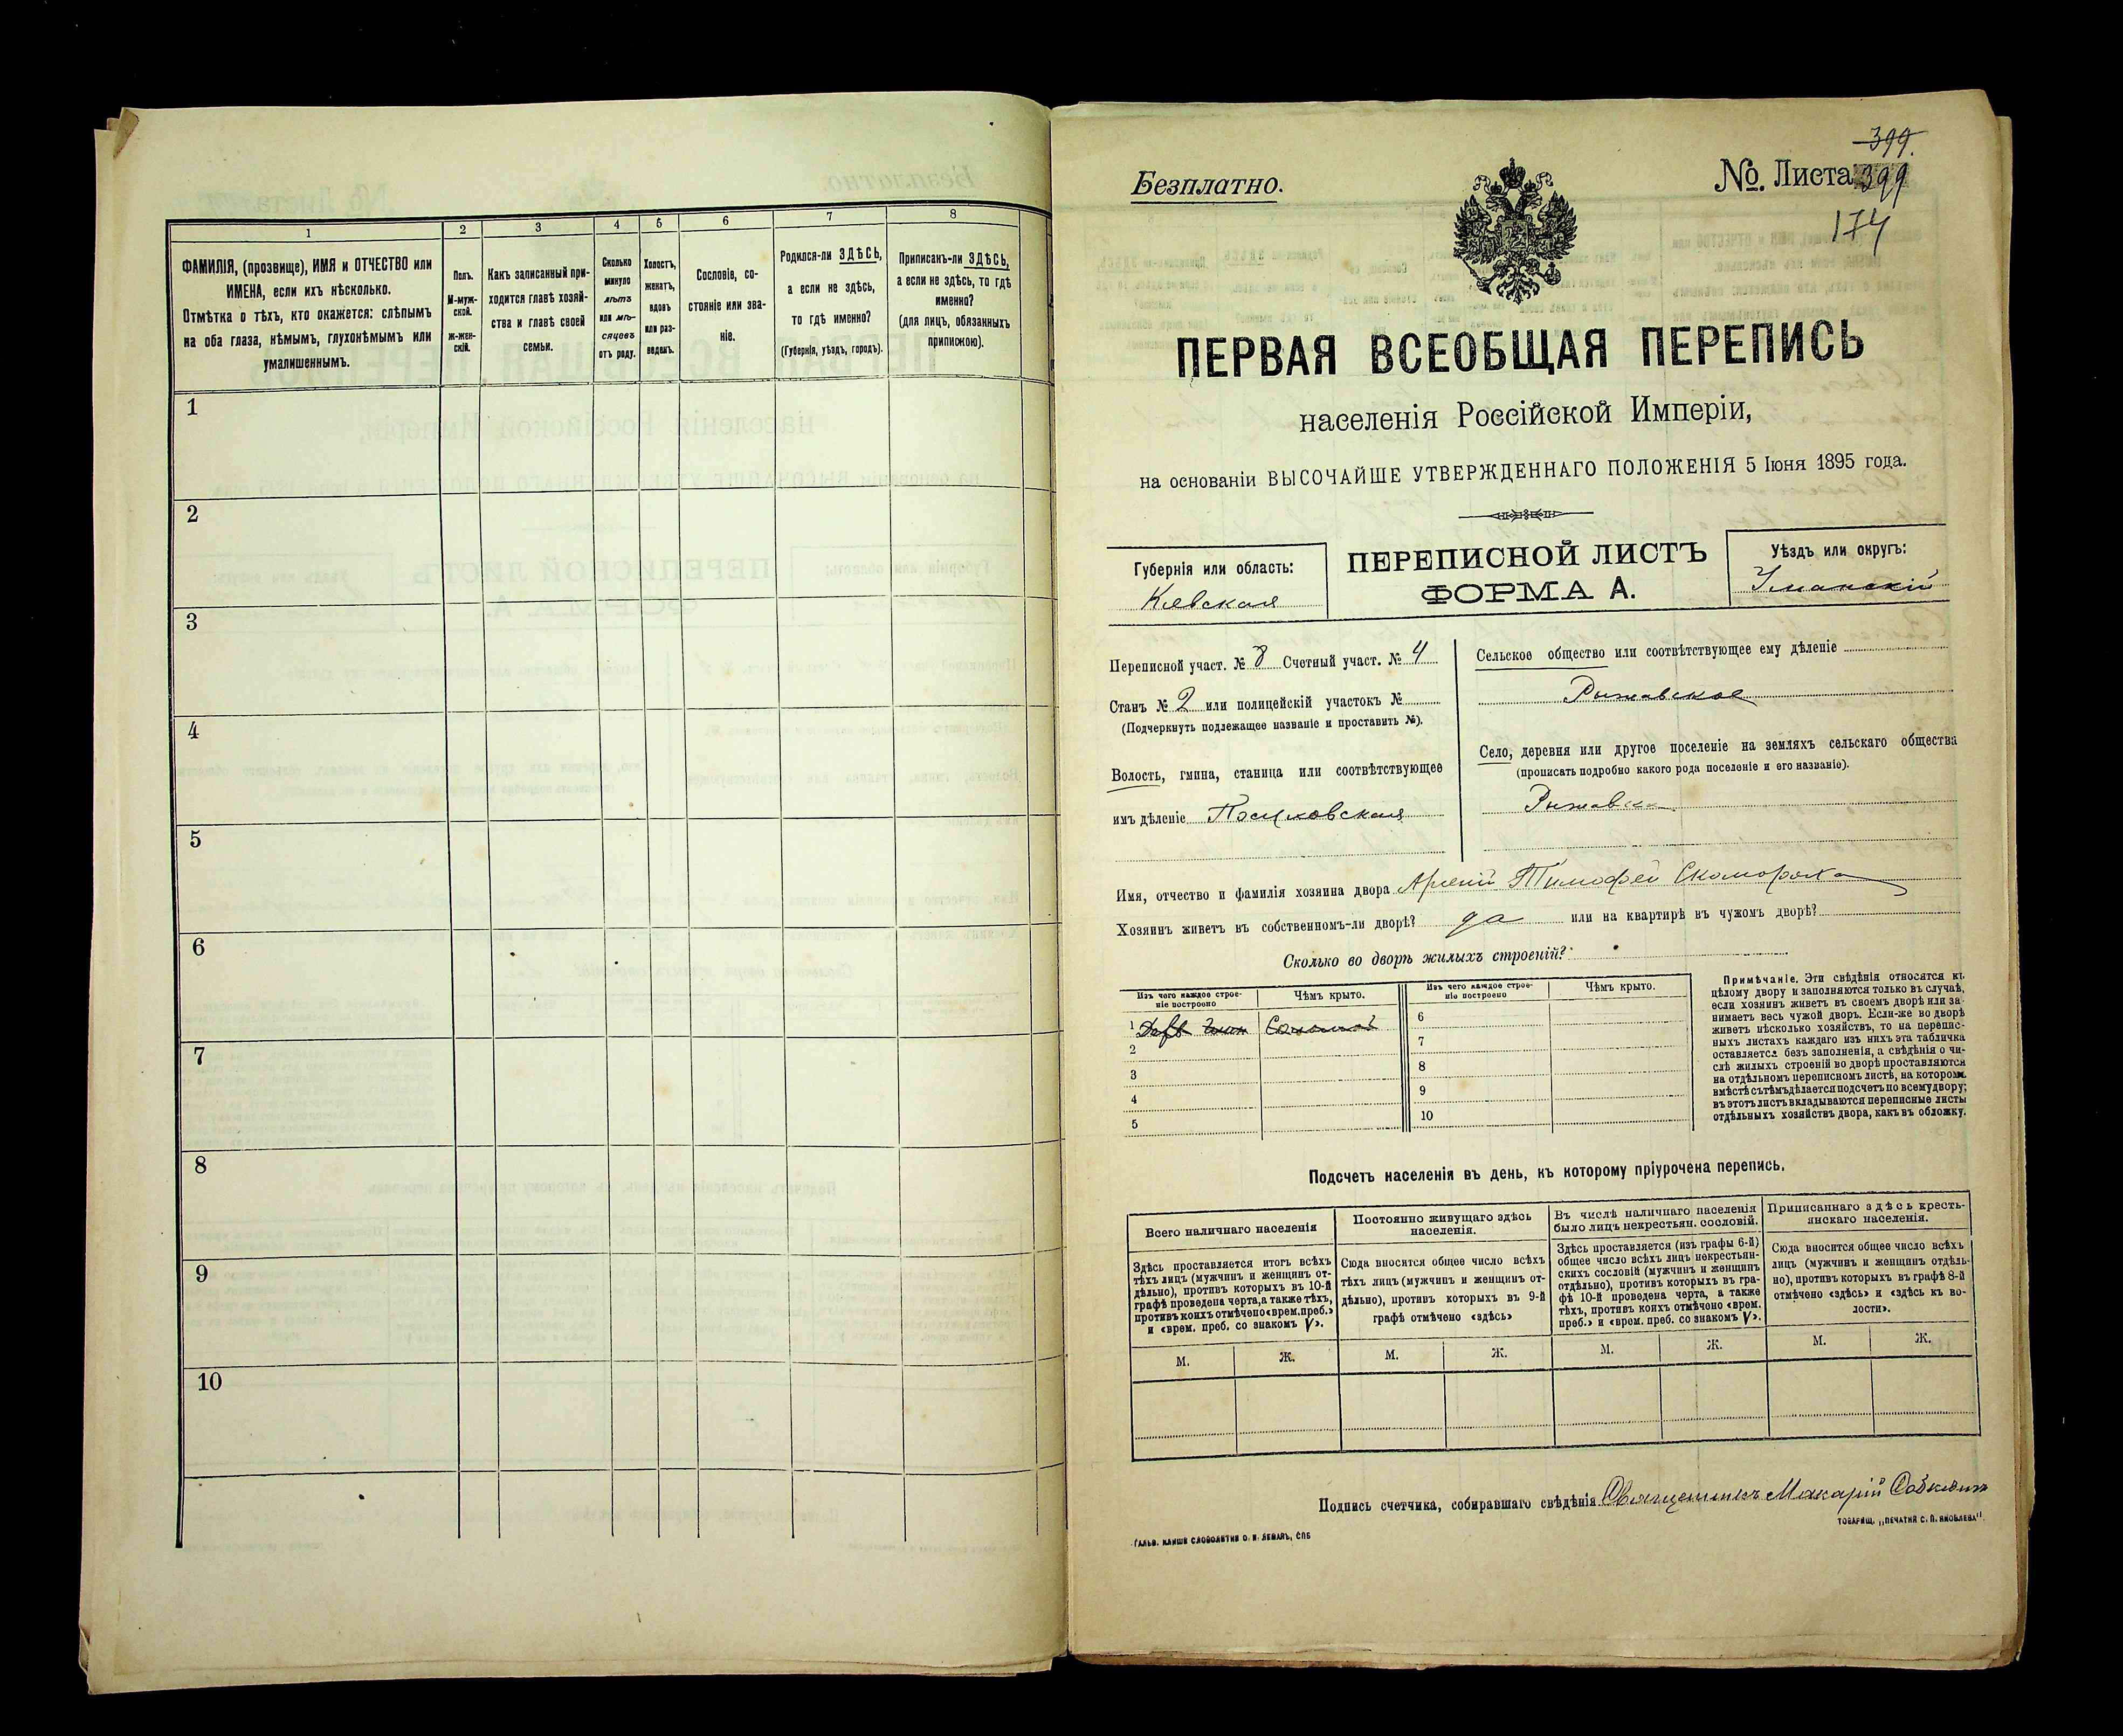 1
2
3
4
5
6
7
8
ФАМИЛІЯ, (прозвище), ИМЯ и ОТЧЕСТВО или
ИМЕНА, если ихъ нѣсколько.
Отмѣтка о тѣхъ, кто окажется: слѣпымъ
на оба глаза, нѣмымъ, глухонѣмымъ или
умалишеннымъ.
Полъ.
М-муж-
ской.
Ж-жен-
скій.
Какъ записанный при-
ходится главѣ хозяй-
ства и главѣ своей
семьи.
Сколько
минуло
лѣтъ
или мѣ-
сяцевъ
отъ роду.
Холостъ,
женатъ,
вдовъ
или раз-
веденъ.
Сословіе, со-
стояніе или зва-
ніе.
Родился-ли ЗДѢСЬ,
а если не здѣсь,
то гдѣ именно?
(Губернія, уѣздъ, городъ).
Приписанъ-ли ЗДѢСЬ,
а если не здѣсь, то гдѣ
именно?
(для лицъ, обязанныхъ
припискою).
1
2
3
4
5
6
7
8
9
10
399.
Безплатно.
№. Листа 399
174
ПЕРВАЯ ВСЕОБЩАЯ ПЕРЕПИСЬ
населенія Россійской Имперіи,
на основаніи ВЫСОЧАЙШЕ УТВЕРЖДЕННАГО ПОЛОЖЕНІЯ 5 Іюня 1895 года.
Губернія или область:
Кіевская
ПЕРЕПИСНОЙ ЛИСТЪ
ФОРМА А.
Уѣздъ или округъ:
Уманскій
Переписной участ. № 8 Счетный участ. № 4
Станъ № 2 или полицейскій участокъ №
(Подчеркнуть подлежащее названіе и проставить №).
Волость, гмина, станица или соотвѣтствующее
имъ дѣленіе
Сельское общество или соотвѣтствующее ему дѣленіе
Рыжавское
Село, деревня или другое поселеніе на земляхъ сельскаго общества
(прописать подробно какого рода поселеніе и его названіе).
Рыжавка
Имя, отчество и фамилія хозяина двора Арсеній Тимофей Скоморохъ
Хозяинъ живетъ въ собственномъ-ли дворѣ? да или на квартирѣ въ чужомъ дворѣ?
Сколько во дворѣ жилыхъ строеній?
Изъ чего каждое строе-
ніе построено
Чѣмъ крыто.
Изъ чего каждое строе-
ніе построено
Чѣмъ крыто.
1 Соломой
2
3
4
5
6
7
8
9
10
Примѣчаніе. Эти свѣдѣнія относятся къ
цѣлому двору и заполняются только въ случаѣ,
если хозяинъ живетъ въ своемъ дворѣ или за-
нимаетъ весь чужой дворъ. Если-же во дворѣ
живетъ нѣсколько хозяйствъ, то на перепис-
ныхъ листахъ каждаго изъ нихъ эта табличка
оставляется безъ заполненія, а свѣдѣнія о чи-
слѣ жилыхъ строеній во дворѣ проставляются
на отдѣльномъ переписномъ листѣ, на которомъ
вмѣстѣ съ тѣмъ дѣлается подсчетъ по всему двору;
въ этотъ листъ вкладываются переписные листы
отдѣльныхъ хозяйствъ двора, какъ въ обложку.
Подсчетъ населенія въ день, къ которому пріурочена перепись.
Всего наличнаго населенія
Здѣсь проставляется итогъ всѣхъ
тѣхъ лицъ (мужчинъ и женщинъ от-
дѣльно), противъ которыхъ въ 10-й
графѣ проведена черта, а также тѣхъ,
противъ коихъ отмѣчено «врем. преб.»
и «врем. преб. со знакомъ V».
Постоянно живущаго здѣсь
населенія.
Сюда вносится общее число всѣхъ
тѣхъ лицъ (мужчинъ и женщинъ от-
дѣльно), противъ которыхъ въ 9-й
графѣ отмѣчено «здѣсь»
Въ числѣ наличнаго населенія
было лицъ некрестьян. сословій.
Здѣсь проставляется (изъ графы 6-й)
общее число всѣхъ лицъ некрестьян-
скихъ сословій (мужчинъ и женщинъ
отдѣльно), противъ которыхъ въ гра-
фѣ 10-й проведена черта, а также
тѣхъ, противъ коихъ отмѣчено «врем.
преб.» и «врем. преб. со знакомъ V».
Приписаннаго здѣсь кресть-
янскаго населенія.
Сюда вносится общее число всѣхъ
лицъ (мужчинъ и женщинъ отдѣль-
но), противъ которыхъ въ графѣ 8-й
отмѣчено «здѣсь» и «здѣсь къ во-
лости».
М. Ж. М. Ж. М. Ж. М. Ж.
Подпись счетчика, собиравшаго свѣдѣнія Священникъ Макарій
ТОВАРИЩ. „ПЕЧАТНЯ С. П. ЯКОВЛЕВА".
ГАЛЬВ. КЛИШЕ СЛОВОЛИТНИ О. И. ЛЕМАНЪ, СПБ